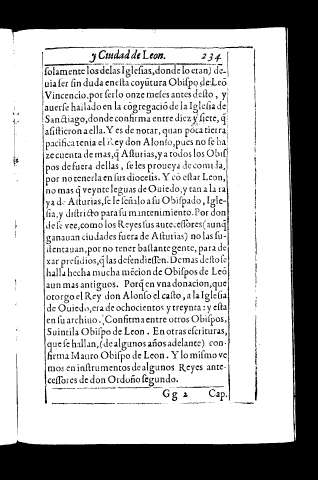 y Ciudad de Leon. 234
solamente los de las Iglesias, donde lo eran) de-
uia ser sin duda en esta coyũtura Obispo de Leõ
Vincencio, por serlo onze meses antes desto, y
auerse hallado en la cõgregació de la Iglesia de
Sanctiago, donde confirma entre diez y siete, q̃
asistieron a ella. Y es de notar, quan poca tierra
pacifica tenia el Rey don Alonso, pues no se ha
ze cuenta de mas, q̃ Asturias, y a todos los Obis
pos de fuera dellas, se les proueya de comida,
por no tenerla en sus diocesis. Y cõ estar Leon,
no mas q̃ veynte leguas de Ouiedo, y tan a la ra
ya de Asturias, se le señalo a su Obispado, Igle-
sia, y districto para su mantenimiento. Por don
de se vee, como los Reyes sus antecessores (aunq̃
ganauan ciudades fuera de Asturias) no las su-
stentauan, por no tener bastante gente, para de
xar presidios, q̃ las defendiessen. De mas desto se
halla hecha mucha mẽcion de Obispos de Leõ
aun mas antiguos. Porq̃ en vna donacion, que
otorgo el Rey don Alonso el casto, a la Iglesia
de Ouiedo, era de ochocientos y treynta: y esta
en su archiuo, Confirma entre otros Obispos,
Suintila Obispo de Leon. En otras escrituras,
que se hallan, (de algunos años adelante) con-
firma Mauro Obispo de Leon. Y lo mismo ve
mos en instrumentos de algunos Reyes ante-
cessores de don Ordoño segundo.
Gg 2 Cap.